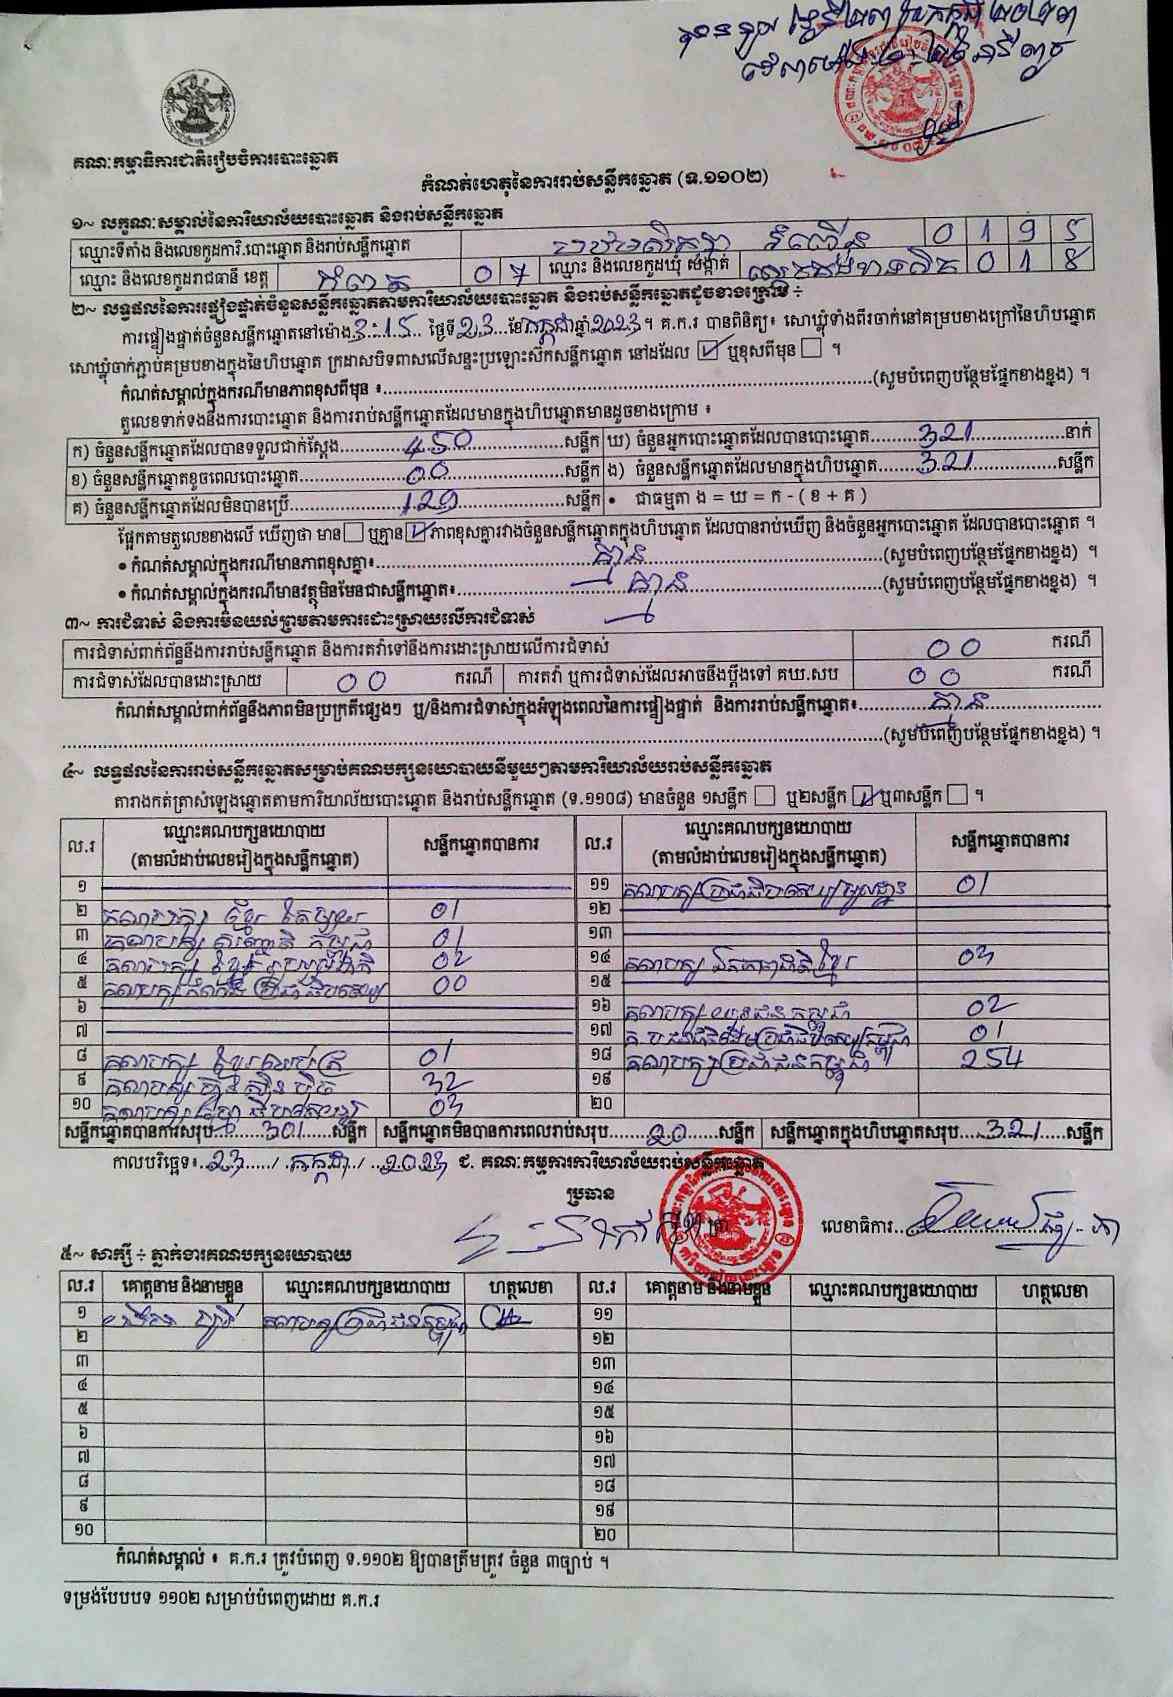 គណៈកម្មាធិការជាតិរៀបចំការបោះឆ្នោត
កំណត់ហេតុនៃការរាប់សន្លឹកឆ្នោត (ទ.១១០២)
១~ លក្ខណៈសម្គាល់នៃការិយាល័យបោះឆ្នោត និងរាប់សន្លឹកឆ្នោត
ឈ្មោះទីតាំង និងលេខកូដការិ.បោះឆ្នោត និងរាប់សន្លឹកឆ្នោត 0 1 9 5
ឈ្មោះ និងលេខកូដរាជធានី ខេត្ត កំពត 0 7 ឈ្មោះ និងលេខកូដឃុំ សង្កាត់ 0 1 8
២~ លទ្ធផលនៃការផ្ទៀងផ្ទាត់ចំនួនសន្លឹកឆ្នោតតាមការិយាល័យបោះឆ្នោត និងរាប់សន្លឹកឆ្នោតដូចខាងក្រោម ÷
ការផ្ទៀងផ្ទាត់ចំនួនសន្លឹកឆ្នោតនៅម៉ោង 3:15 ថ្ងៃទី 23 ខែ កក្កដា ឆ្នាំ 2023 ។ គ.ក.រ បានពិនិត្យ៖ សោឃ្លុំទាំងពីរចាក់នៅគម្របខាងក្រៅនៃហិបឆ្នោត
សោឃ្លុំចាក់ភ្ជាប់គម្របខាងក្នុងនៃហិបឆ្នោត ក្រដាសបិទពាសលើសន្ទះប្រឡោះស៊កសន្លឹកឆ្នោត នៅដដែល ☑ ឬខុសពីមុន ☐ ។
កំណត់សម្គាល់ក្នុងករណីមានភាពខុសពីមុន ៖ (សូមបំពេញបន្ថែមផ្នែកខាងខ្នង) ។
តួលេខទាក់ទងនឹងការបោះឆ្នោត និងការរាប់សន្លឹកឆ្នោតដែលមានក្នុងហិបឆ្នោតមានដូចខាងក្រោម ៖
ក) ចំនួនសន្លឹកឆ្នោតដែលបានទទួលជាក់ស្តែង 450 សន្លឹក ឃ) ចំនួនអ្នកបោះឆ្នោតដែលបានបោះឆ្នោត 321 នាក់
ខ) ចំនួនសន្លឹកឆ្នោតខូចពេលបោះឆ្នោត 00 សន្លឹក ង) ចំនួនសន្លឹកឆ្នោតដែលមានក្នុងហិបឆ្នោត 321 សន្លឹក
គ) ចំនួនសន្លឹកឆ្នោតដែលមិនបានប្រើ 129 សន្លឹក • ជាធម្មតា ង = ឃ = ក - ( ខ + គ )
ផ្អែកតាមតួលេខខាងលើ ឃើញថា មាន ☐ ឬគ្មាន ☑ ភាពខុសគ្នារវាងចំនួនសន្លឹកឆ្នោតក្នុងហិបឆ្នោត ដែលបានរាប់ឃើញ និងចំនួនអ្នកបោះឆ្នោត ដែលបានបោះឆ្នោត ។
• កំណត់សម្គាល់ក្នុងករណីមានភាពខុសគ្នា៖ គ្មាន (សូមបំពេញបន្ថែមផ្នែកខាងខ្នង) ។
• កំណត់សម្គាល់ក្នុងករណីមានវត្ថុមិនមែនជាសន្លឹកឆ្នោត៖ គ្មាន (សូមបំពេញបន្ថែមផ្នែកខាងខ្នង) ។
៣~ ការជំទាស់ និងការមិនយល់ព្រមតាមការដោះស្រាយលើការជំទាស់
ការជំទាស់ពាក់ព័ន្ធនឹងការរាប់សន្លឹកឆ្នោត និងការតវ៉ាទៅនឹងការដោះស្រាយលើការជំទាស់ 00 ករណី
ការជំទាស់ដែលបានដោះស្រាយ 00 ករណី ការតវ៉ា ឬការជំទាស់ដែលអាចនឹងប្តឹងទៅ គឃ.សប 00 ករណី
កំណត់សម្គាល់ពាក់ព័ន្ធនឹងភាពមិនប្រក្រតីផ្សេងៗ ឬ/និងការជំទាស់ក្នុងអំឡុងពេលនៃការផ្ទៀងផ្ទាត់ និងការរាប់សន្លឹកឆ្នោត៖ គ្មាន
(សូមបំពេញបន្ថែមផ្នែកខាងខ្នង) ។
៤~ លទ្ធផលនៃការរាប់សន្លឹកឆ្នោតសម្រាប់គណបក្សនយោបាយនីមួយៗតាមការិយាល័យរាប់សន្លឹកឆ្នោត
តារាងកត់ត្រាសំឡេងឆ្នោតតាមការិយាល័យបោះឆ្នោត និងរាប់សន្លឹកឆ្នោត (ទ.១១០៨) មានចំនួន ១សន្លឹក ☐ ឬ២សន្លឹក ☑ ឬ៣សន្លឹក ☐ ។
ល.រ ឈ្មោះគណបក្សនយោបាយ (តាមលំដាប់លេខរៀងក្នុងសន្លឹកឆ្នោត) សន្លឹកឆ្នោតបានការ ល.រ ឈ្មោះគណបក្សនយោបាយ (តាមលំដាប់លេខរៀងក្នុងសន្លឹកឆ្នោត) សន្លឹកឆ្នោតបានការ
១ ១១ គណបក្សប្រជាធិបតេយ្យមូលដ្ឋាន 01
២ គណបក្ស ខ្មែរ តែមួយ 01 ១២
៣ គណបក្ស សញ្ជាតិ កម្ពុជា 01 ១៣
៤ គណបក្ស ខ្មែររួបរួមជាតិ 02 ១៤ គណបក្ស ឯកភាពជាតិខ្មែរ 03
៥ គណបក្ស សំបុកឃ្មុំ 00 ១៥
៦ ១៦ គណបក្ស យុវជន កម្ពុជា 02
៧ ១៧ 01
៨ គណបក្ស ខ្មែរ 01 ១៨ គណបក្សប្រជាជនកម្ពុជា 254
៩ គណបក្ស ហ្វ៊ុនស៊ិនប៉ិច 32 ១៩
១០ 03 ២០
សន្លឹកឆ្នោតបានការសរុប 301 សន្លឹក សន្លឹកឆ្នោតមិនបានការពេលរាប់សរុប 20 សន្លឹក សន្លឹកឆ្នោតក្នុងហិបឆ្នោតសរុប 321 សន្លឹក
កាលបរិច្ឆេទ៖ 23 / កក្កដា / 2023 ជ. គណៈកម្មការការិយាល័យរាប់សន្លឹកឆ្នោត
ប្រធាន
លេខាធិការ
៥~ សាក្សី ÷ ភ្នាក់ងារគណបក្សនយោបាយ
ល.រ គោត្តនាម និងនាមខ្លួន ឈ្មោះគណបក្សនយោបាយ ហត្ថលេខា ល.រ គោត្តនាម និងនាមខ្លួន ឈ្មោះគណបក្សនយោបាយ ហត្ថលេខា
១ គណបក្សប្រជាជនកម្ពុជា ១១
២ ១២
៣ ១៣
៤ ១៤
៥ ១៥
៦ ១៦
៧ ១៧
៨ ១៨
៩ ១៩
១០ ២០
កំណត់សម្គាល់ ៖ គ.ក.រ ត្រូវបំពេញ ទ.១១០២ ឱ្យបានត្រឹមត្រូវ ចំនួន ៣ច្បាប់ ។
ទម្រង់បែបបទ ១១០២ សម្រាប់បំពេញដោយ គ.ក.រ